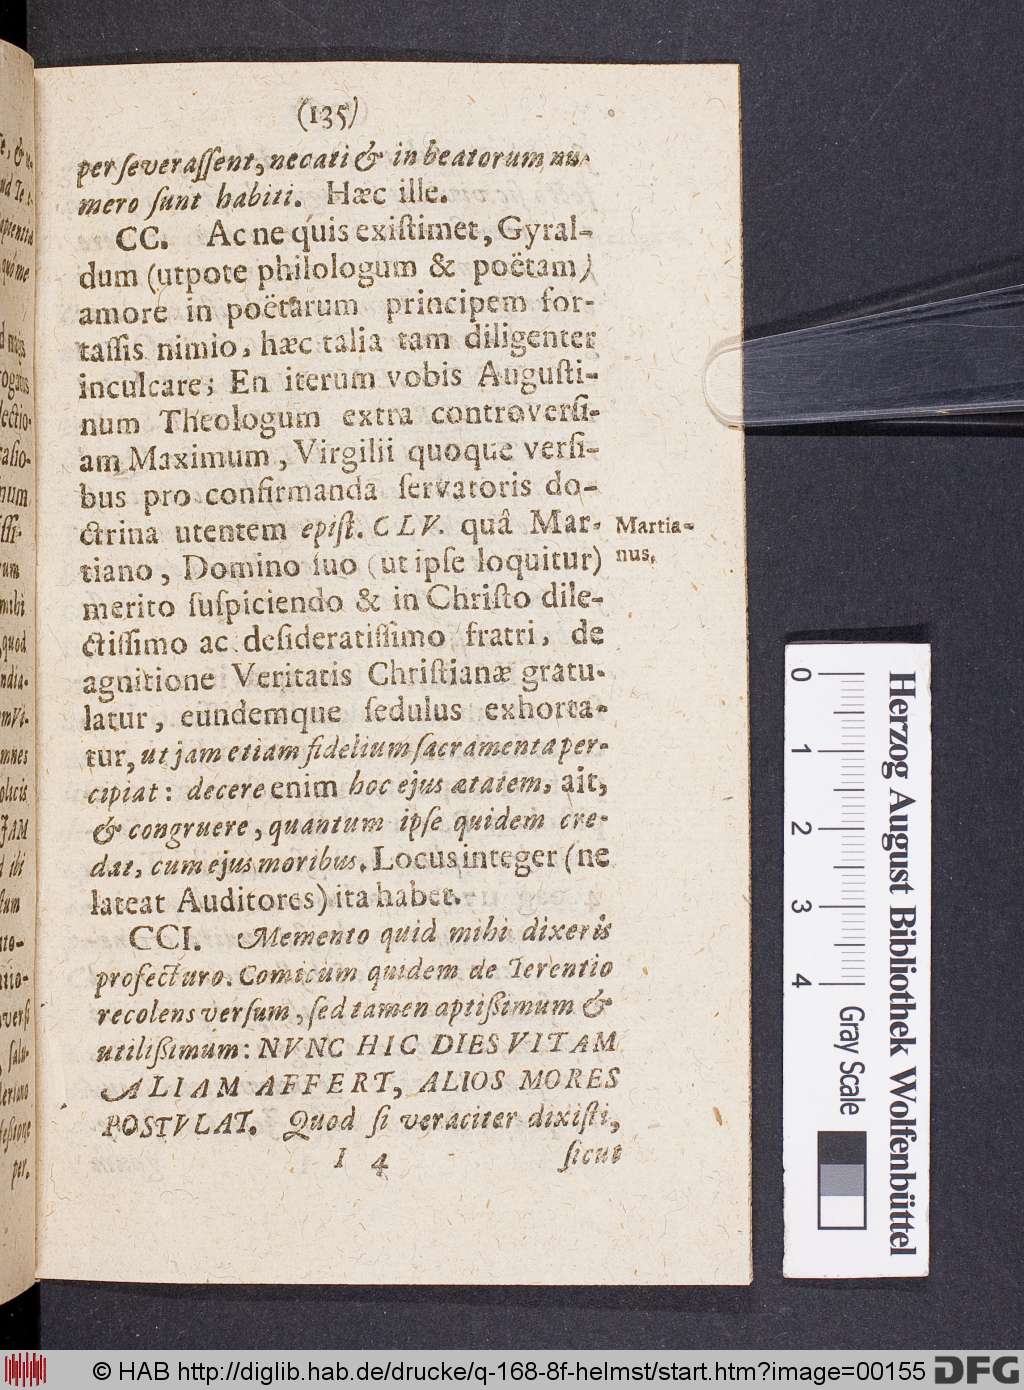 (135)
perseverassent, necati & in beatorum nu-
mero sunt habiti. Hæc ille.
CC. Ac ne quis existimet, Gyral-
dum (utpote philologum & poëtam)
amore in poëtarum principem for-
tassis nimio, hæc talia tam diligenter
inculcare; En iterum vobis Augusti-
num Theologum extra controversi-
am Maximum, Virgilii quoque versi-
bus pro confirmanda servatoris do-
ctrina utentem epist. CLV. quâ Mar-
Martia-
nus.
tiano, Domino suo (ut ipse loquitur)
merito suspiciendo & in Christo dile-
ctissimo ac desideratissimo fratri, de
agnitione Veritatis Christianæ gratu-
latur, eundemque sedulus exhorta-
tur, ut jam etiam fidelium sacramenta per-
cipiat: decere enim hoc ejus ætatem, ait,
& congruere, quantum ipse quidem cre-
dat, cum ejus moribus. Locus integer (ne
lateat Auditores) ita habet.
CCI. Memento quid mihi dixeris
profecturo. Comicum quidem de Terentio
recolens versum, sed tamen aptißimum &
utilißimum: NVNC HIC DIES VITAM
ALIAM AFFERT, ALIOS MORES
POSTVLAT. Quod si veraciter dixisti,
I 4
sicut
0 1 2 3 4
Herzog August Bibliothek Wolfenbüttel
Gray Scale
© HAB http://diglib.hab.de/drucke/q-168-8f-helmst/start.htm?image=00155
DFG